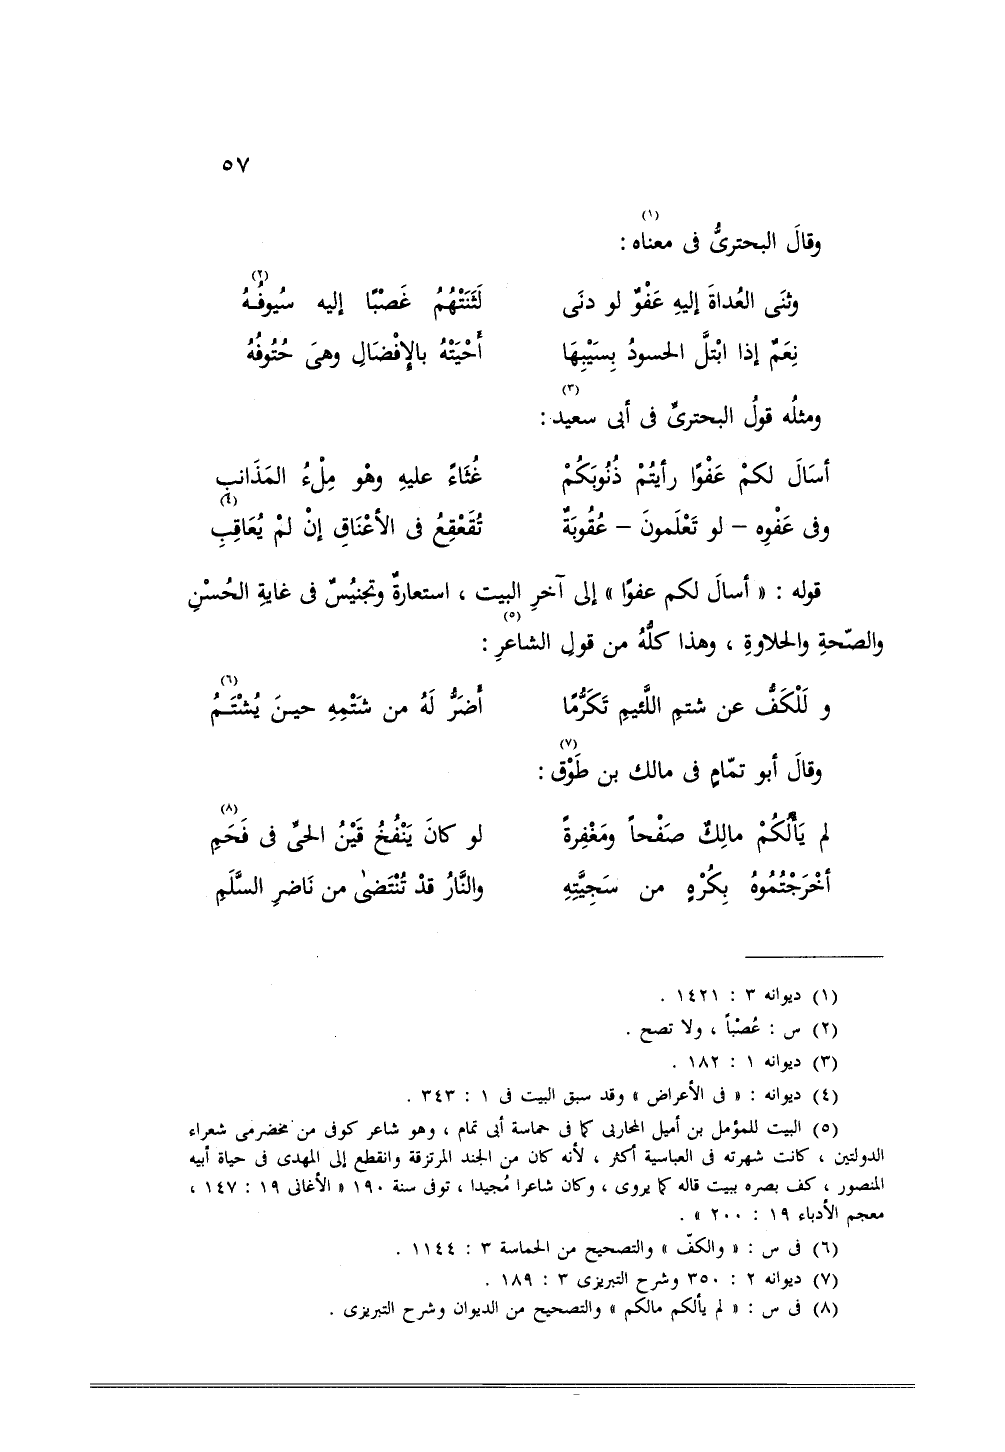 ٥٧
وقالَ البحترىُّ فى معناه (١) :
وثنَى العُداةَ إليهِ عَفْوٌ لو دنَى لَثَنَتْهُمُ غَصْبًا إليه سُيوفُهُ (٢)
نِعَمٌ إذا ابْتلَّ الحسودُ بِسَيْبِهَا أَحْيَتْهُ بالإِفْضَالِ وهىَ حُتُوفُهُ
ومثلُه قولُ البحترىِّ فى أبى سعيد (٣) :
أسَالَ لكمْ عَفْوًا رأيتُمْ ذُنُوبَكُمْ غُثَاءً عليهِ وهْو مِلْءُ المَذَانبِ
وفى عَفْوِه – لو تَعْلَمونَ – عُقُوبَةٌ تُقَعْقِعُ فى الأعْنَاقِ إنْ لمْ يُعَاقِبِ (٤)
قوله : « أسالَ لكم عفوًا » إلى آخرِ البيت ، استعارةٌ وتجنيْسٌ فى غايةِ الحُسْنِ
والصّحةِ والحلاوةِ ، وهذا كلُّهُ من قولِ الشاعرِ (٥) :
و لَلْكَفُّ عن شتمِ اللَّئيمِ تَكَرُّمًا أَضرُّ لَهُ من شَتْمِهِ حينَ يُشْتَمُ (٦)
وقالَ أبو تمّامٍ فى مالك بن طَوْق (٧) :
لم يَأْلُكُمْ مالِكٌ صَفْحاً ومَغْفِرةً لو كانَ يَنْفُخُ قَيْنُ الحىِّ فى فَحَمِ (٨)
أخْرَجْتُمُوهُ بِكُرْهٍ من سَجِيَّتِهِ والنَّارُ قدْ تُنْتَضىٰ من نَاضرِ السَّلَمِ
(١) ديوانه ٣ : ١٤٢١ .
(٢) س : عُصْباً ، ولا تصح .
(٣) ديوانه ١ : ١٨٢ .
(٤) ديوانه : « فى الأعراض » وقد سبق البيت فى ١ : ٣٤٣ .
(٥) البيت للمؤمل بن أميل المحاربى كما فى حماسة أبى تمام ، وهو شاعر كوفى من مخضرمى شعراء
الدولتين ، كانت شهرته فى العباسية أكثر ، لأنه كان من الجند المرتزقة وانقطع إلى المهدى فى حياة أبيه
المنصور ، كف بصره ببيت قاله كما يروى ، وكان شاعرا مُجيدا ، توفى سنة ١٩٠ « الأغانى ١٩ : ١٤٧ ،
معجم الأدباء ١٩ : ٢٠٠ » .
(٦) فى س : « والكفّ » والتصحيح من الحماسة ٣ : ١١٤٤ .
(٧) ديوانه ٢ : ٣٥٠ وشرح التبريزى ٣ : ١٨٩ .
(٨) فى س : « لم يألكم مالكم » والتصحيح من الديوان وشرح التبريزى .